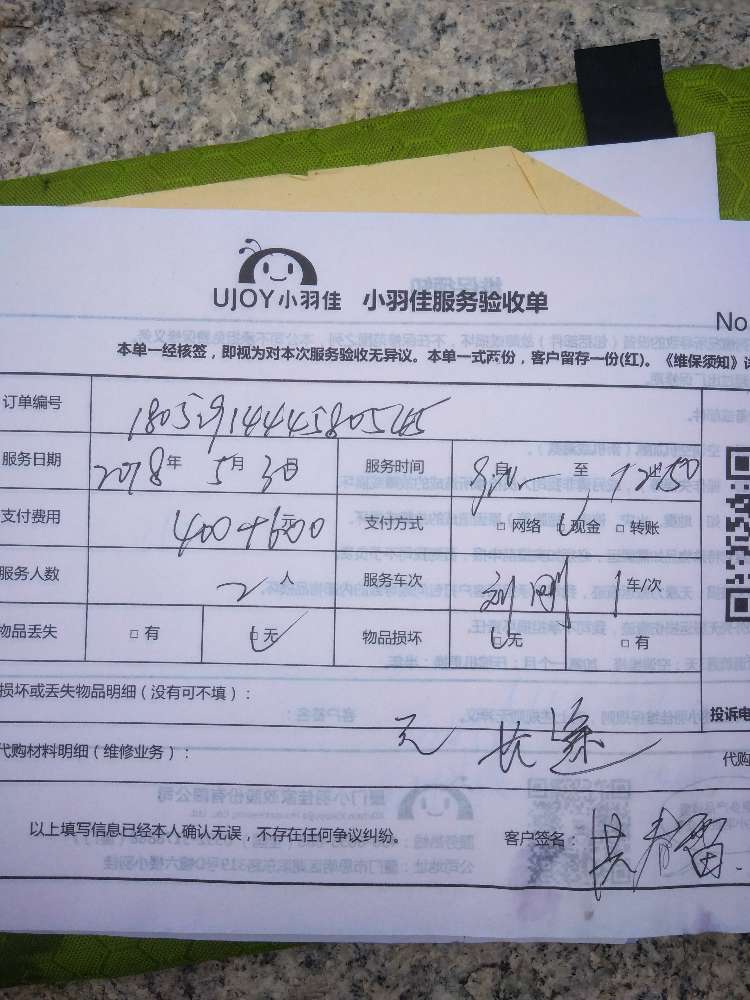 UJOY小羽佳 小羽佳服务验收单
No
本单一经核签，即视为对本次服务验收无异议。本单一式两份，客户留存一份(红)。《维保须知》
订单编号
服务日期 2018年 5月 30日 服务时间 自 至
支付费用 400+600 支付方式 □ 网络 □ 现金 □ 转账
服务人数 2 人 服务车次 刘刚 1 车/次
物品丢失 □ 有 □ 无 物品损坏 □ 无 □ 有
损坏或丢失物品明细（没有可不填）：
投诉电
无 长途
代购材料明细（维修业务）： 代购
以上填写信息已经本人确认无误，不存在任何争议纠纷。 客户签名：